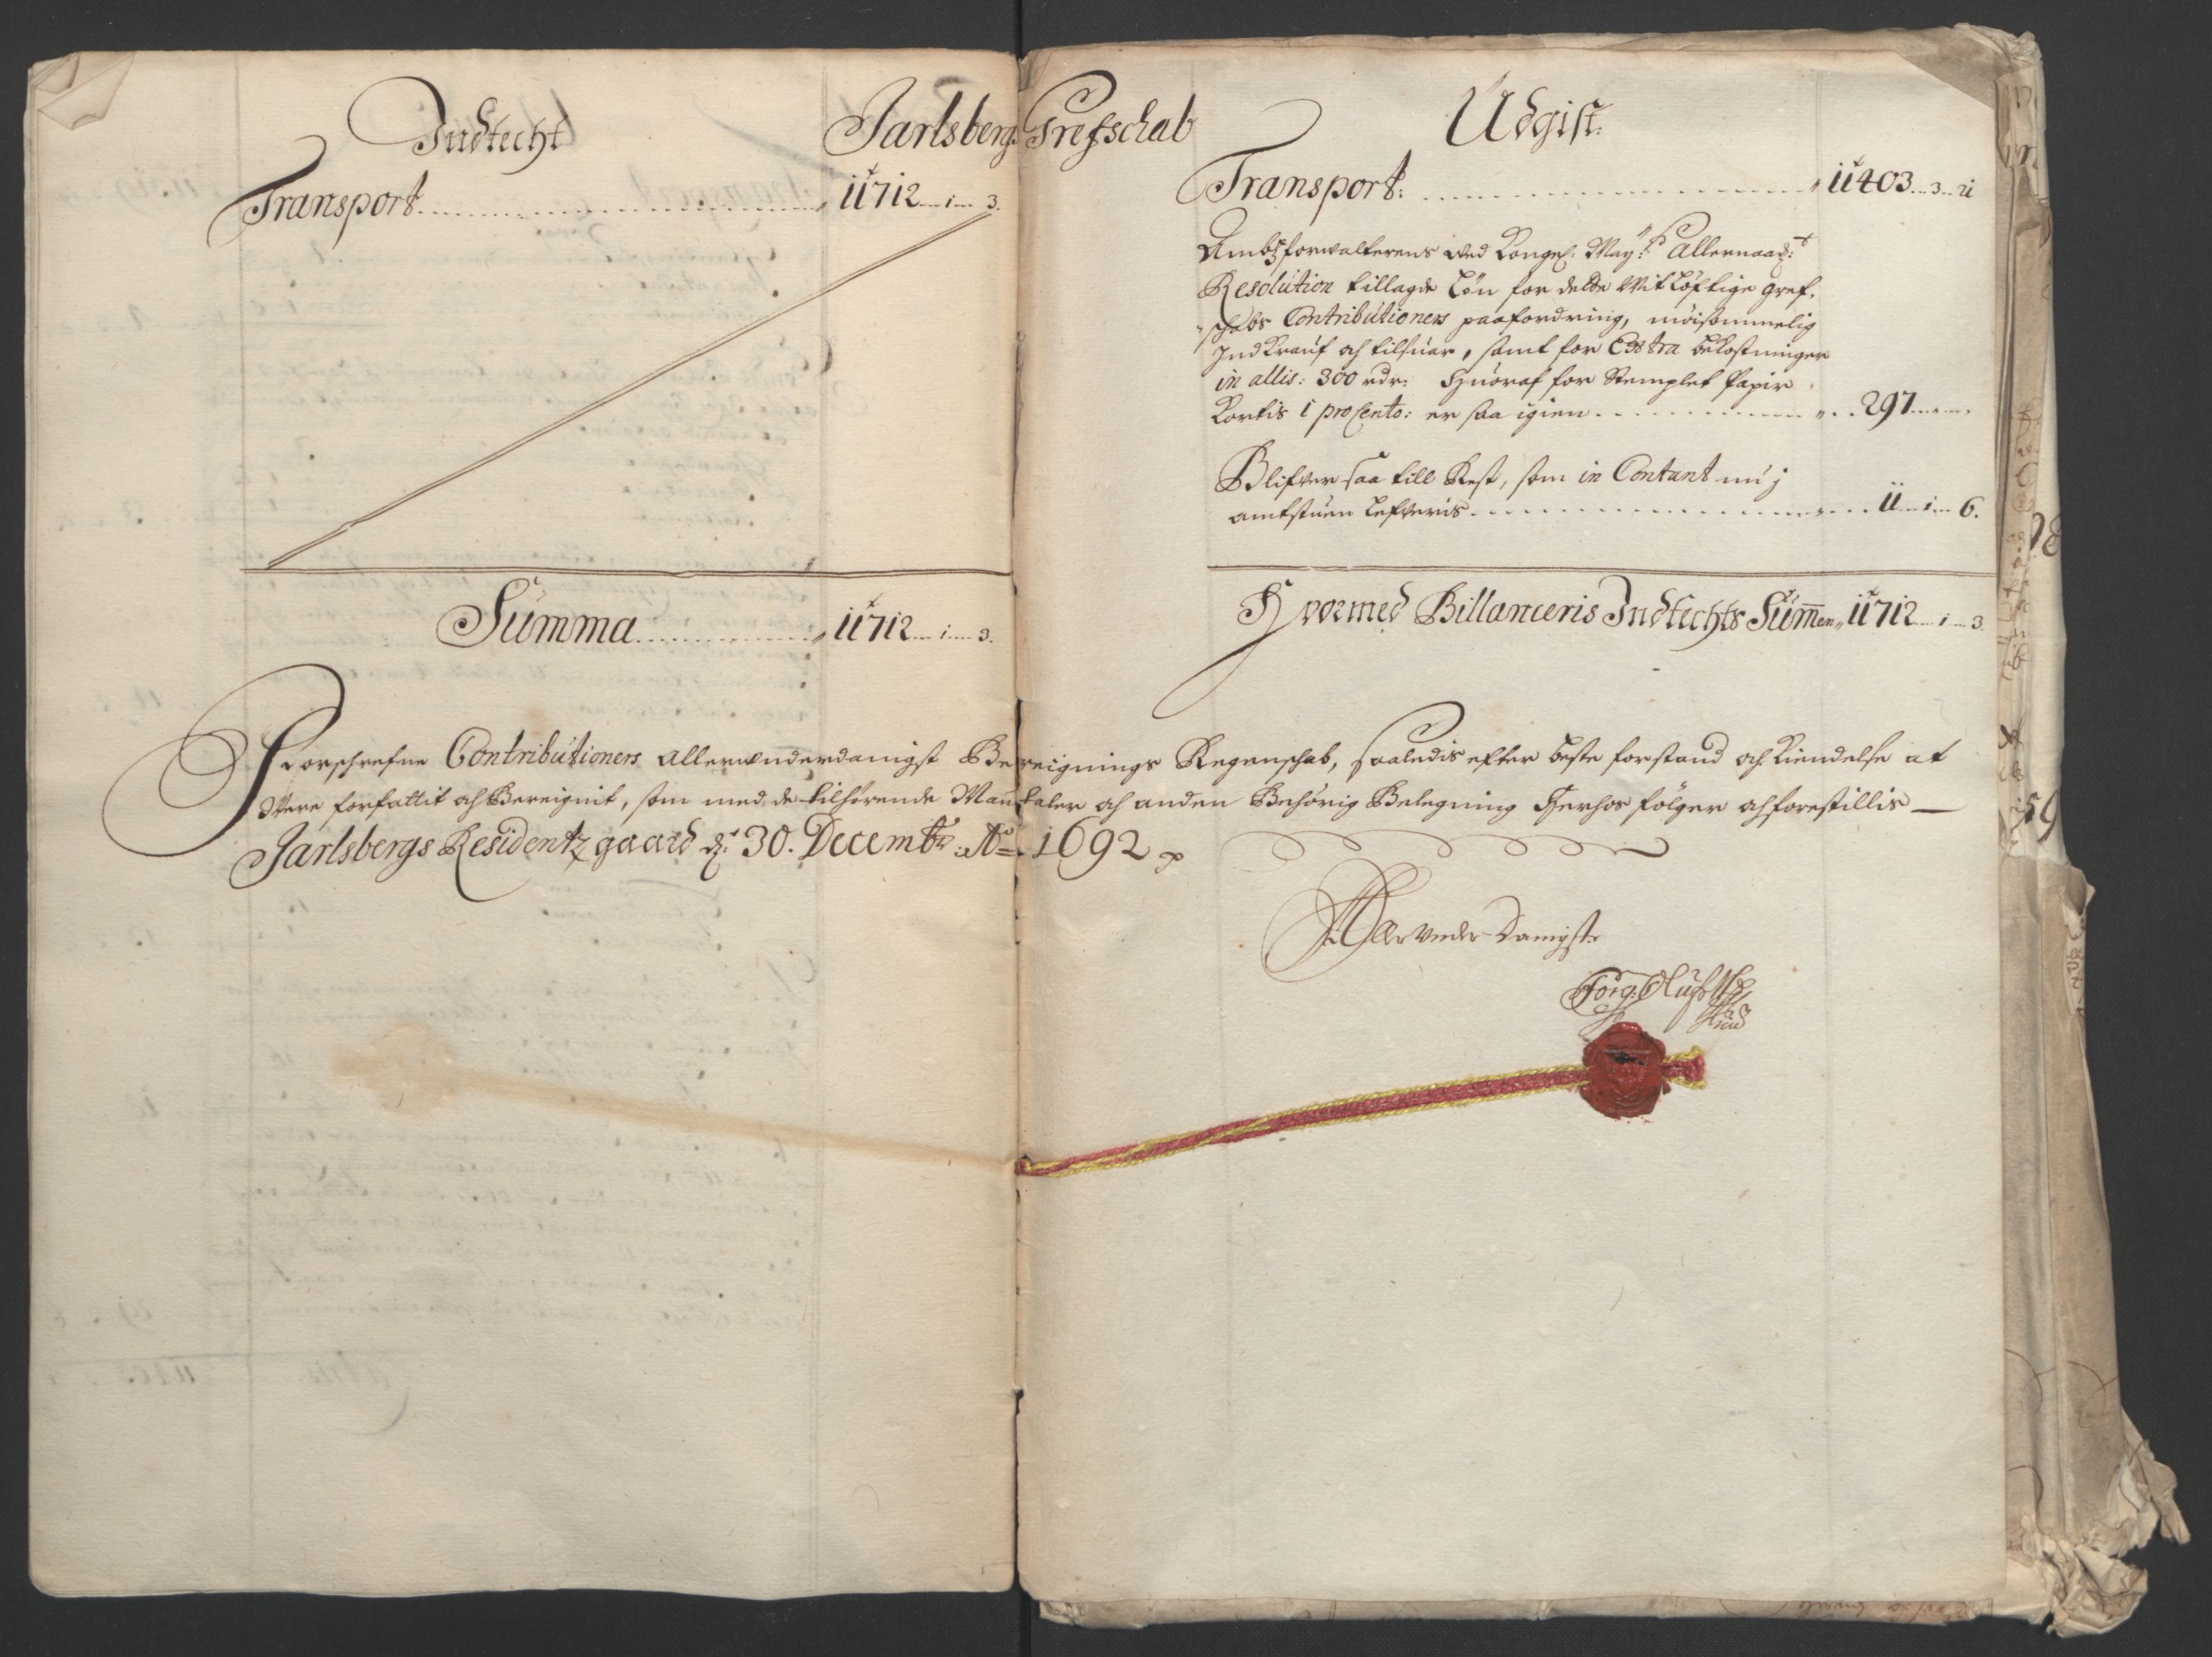 Indtecht
Jarlsbergs Grefschab
Udgift.
Transport 11712 – 1 – 3.
Transport: 11403 – 3 – 21
Ambtzforvalterens ved Kongel: May:ts Allernaad:t
Resolution tillagde Løn for dette Vitløftige Gref-
schabs Contributioners paafordring, møisommelig
Indkrauf och tilsuar, samt for Extra bekostninger
in allis: 300 rdr: Huoraf for Stemplet Papir
Kortis 1 pro Cento: er saa igien 297
Blifver saa till Rest, som in Contant nu j
amtstuen Lefveris 11 – 1 – 6.
Summa 11712 – 1 – 3.
Hvormed Billanceris Indtechts Summen 11712 – 1 – 3.
Forschrefne Contributioners allerunderdanigst Bereignings Regenschab, saaledis efter beste forstand och Kiendelse at
Vere forfattit och Bereignit, som med de tilhørende Mantaler och anden Behørig Belegning herhos følger och forestillis
Jarlsbergs Residentzgaard d: 30. Decembr: Ao 1692
Allerunderdanigste